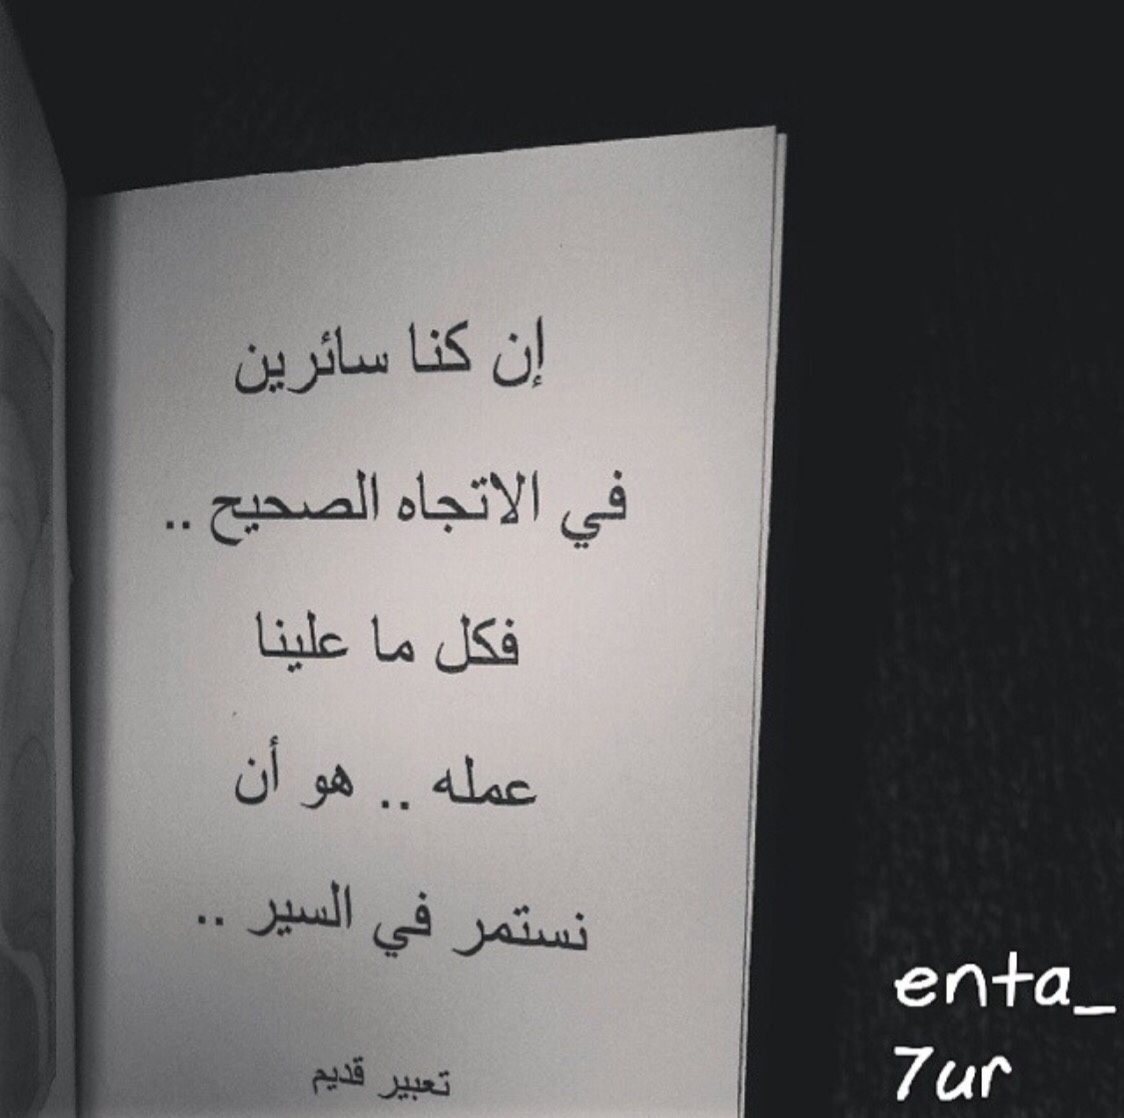 إن كنا سائرين
في الاتجاه الصحيح ..
فكل ما علينا
عمله .. هو أن
نستمر في السير ..
تعبير قديم
enta_
7ur